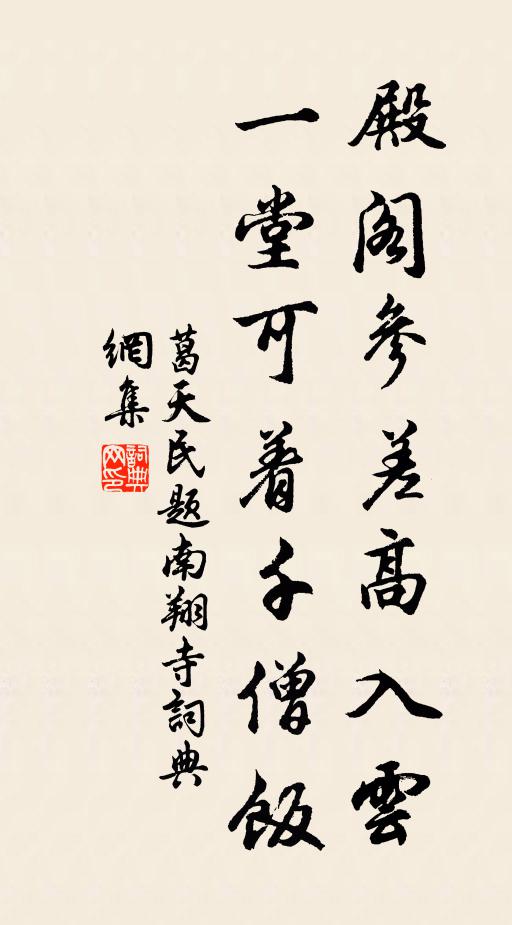 殿阁參差高入雲
一堂可着千僧飯
葛天民题南翔寺詞典
網集
詞典网印